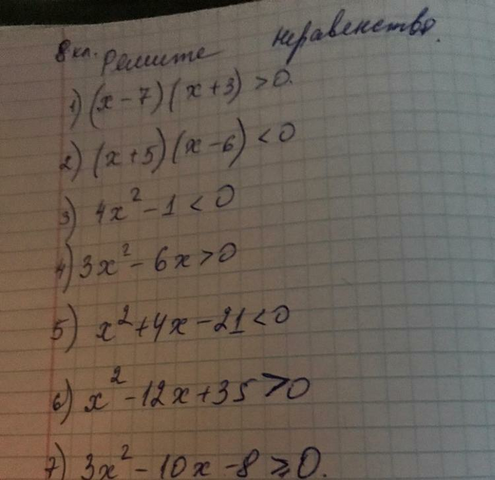 8 кл. Решите неравенство.
1) (x-7)(x+3)>0.
2) (x+5)(x-6)<0
3) 4x²-1<0
4) 3x²-6x>0
5) x²+4x-21<0
6) x²-12x+35>0
7) 3x²-10x-8≥0.